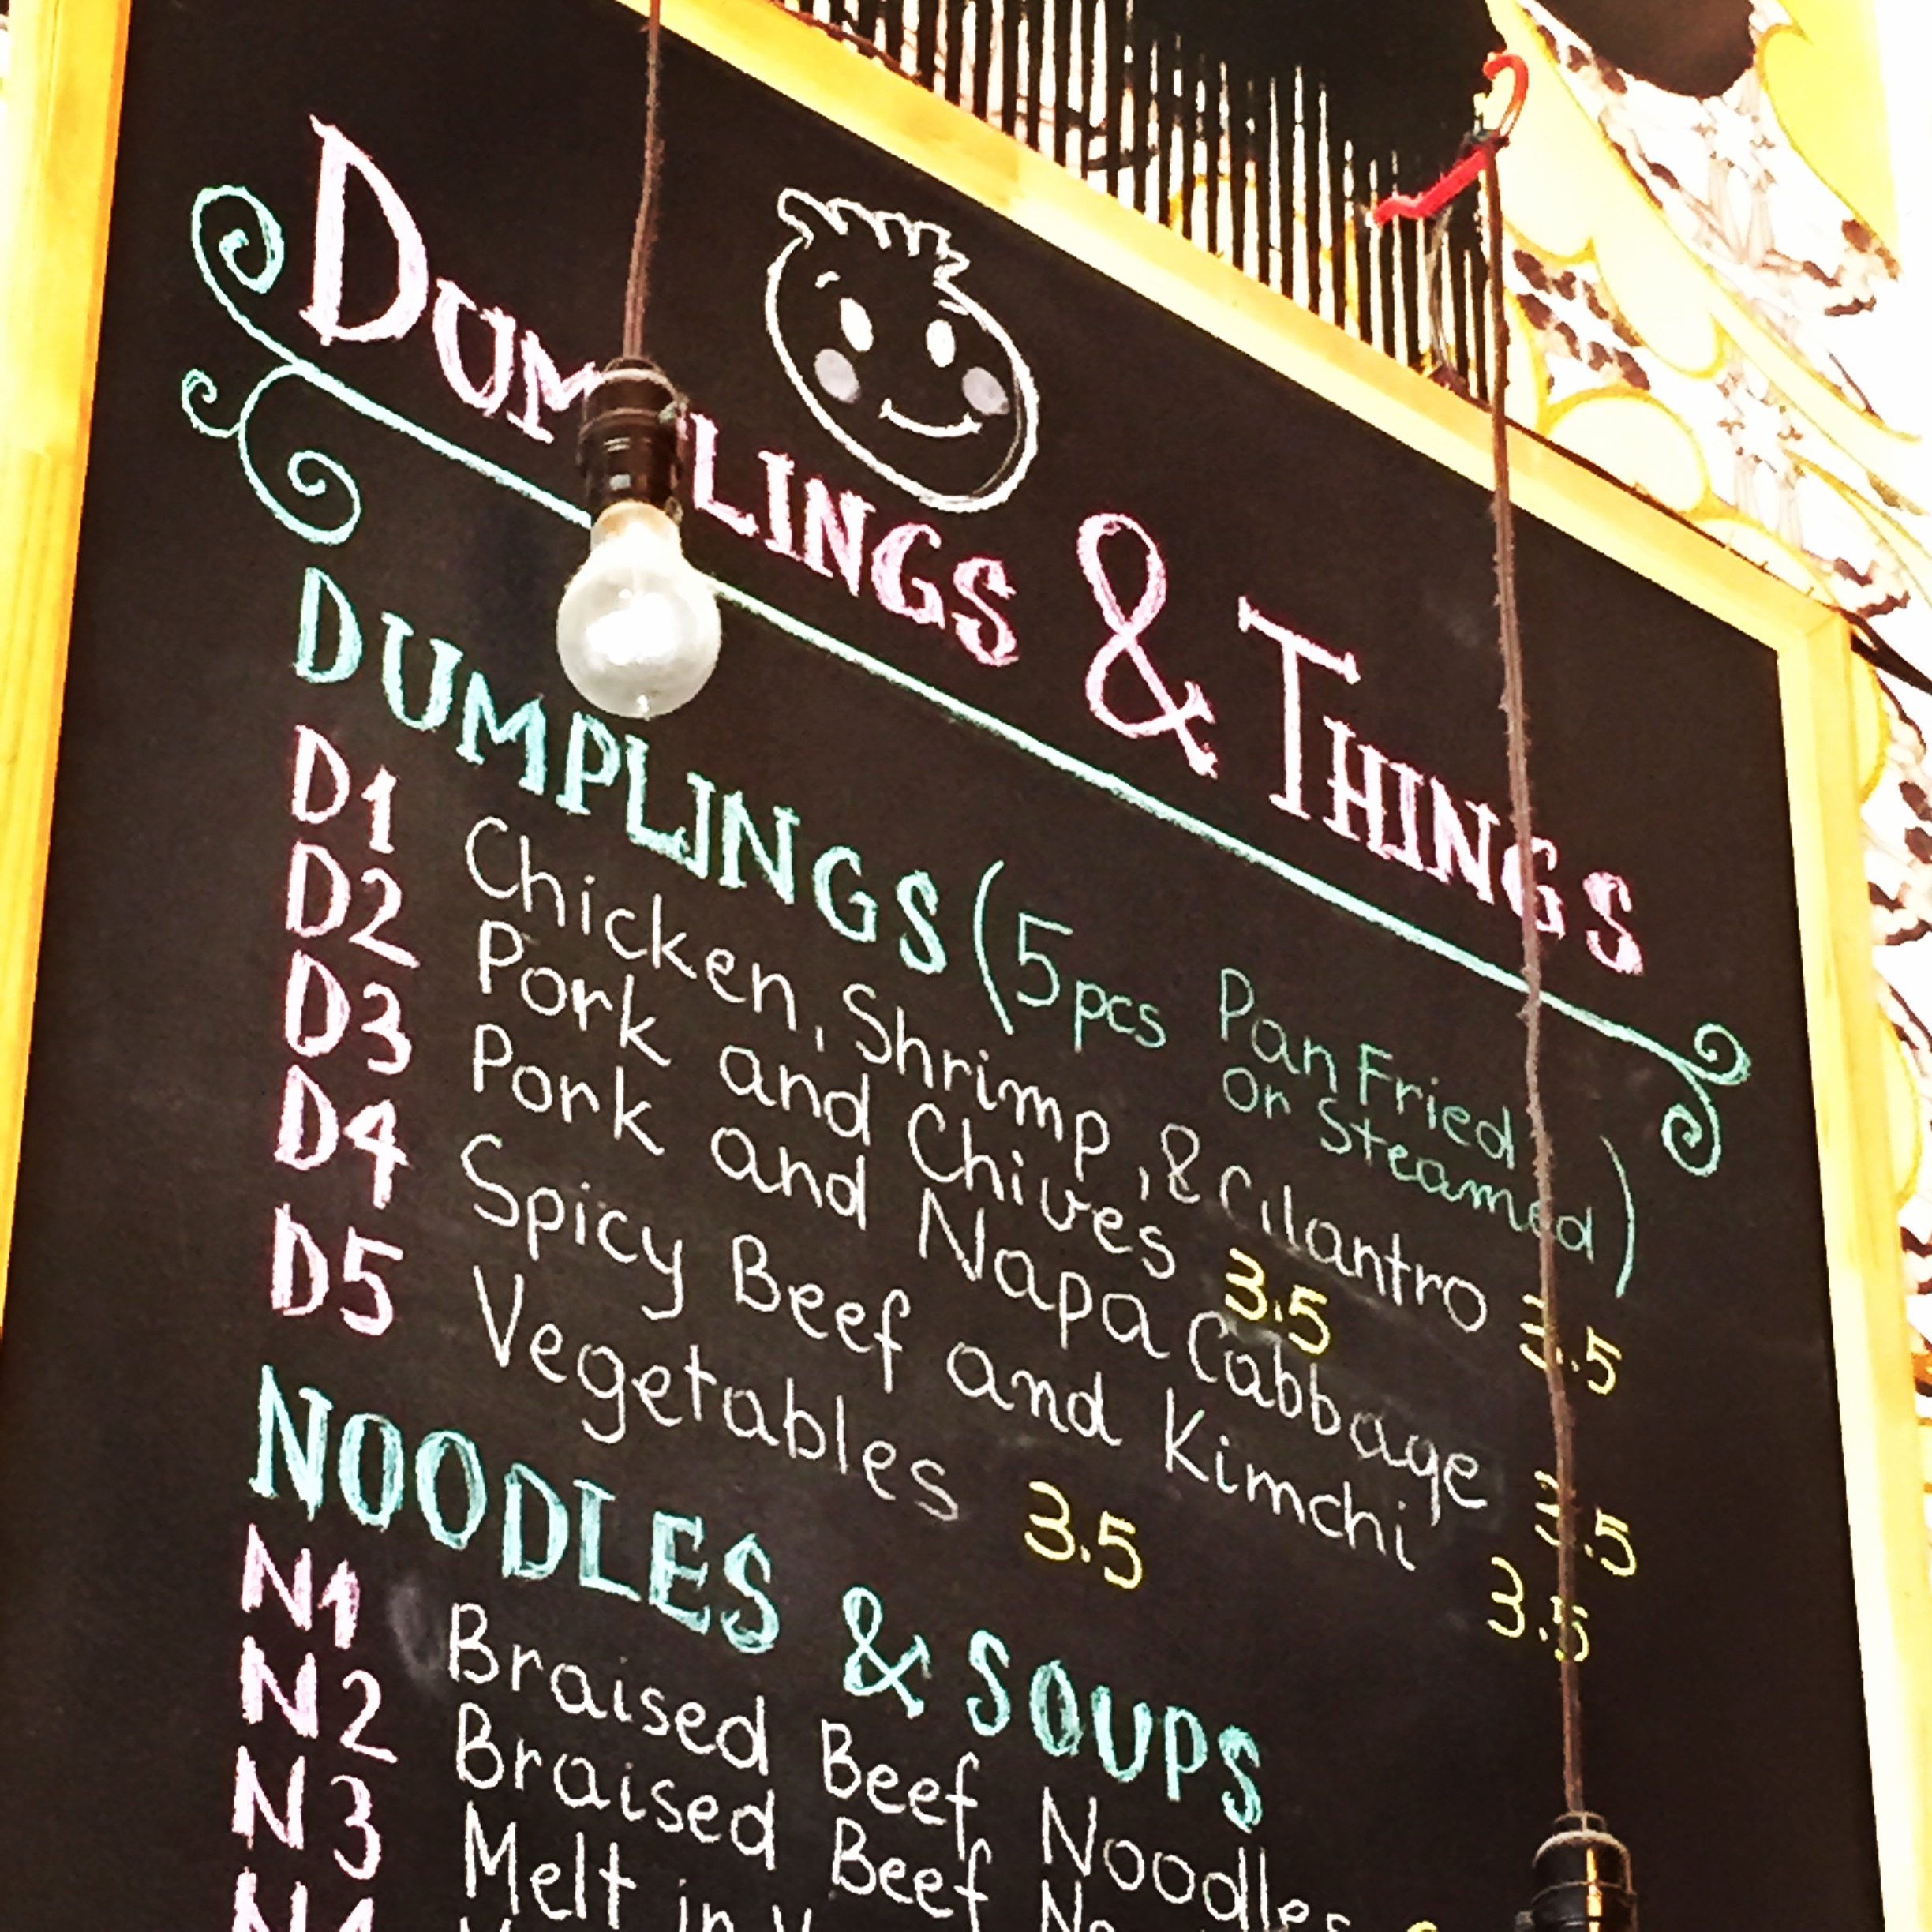 DUMPLINGS & THINGS
DUMPLINGS (5pcs Pan Fried or Steamed)
D1 Chicken, Shrimp, & Cilantro 3.5
D2 Pork and Chives 3.5
D3 Pork and Napa Cabbage 3.5
D4 Spicy Beef and Kimchi 3.5
D5 Vegetables 3.5
NOODLES & SOUPS
N1 Braised Beef Noodles
N2 Braised Beef
N3 Melt in
N4